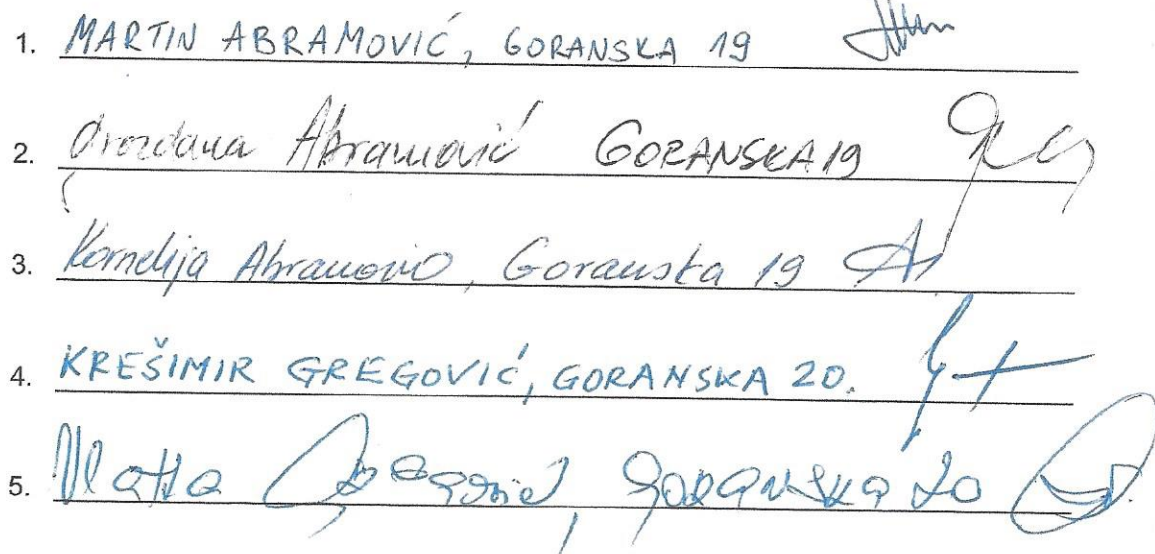 1. MARTIN ABRAMOVIĆ, GORANSKA 19
2. Grozdana Abramović GORANSKA 19
3. Kornelija Abramović, Goranska 19
4. KREŠIMIR GREGOVIĆ, GORANSKA 20.
5. Vlatka Gregović, GORANSKA 20